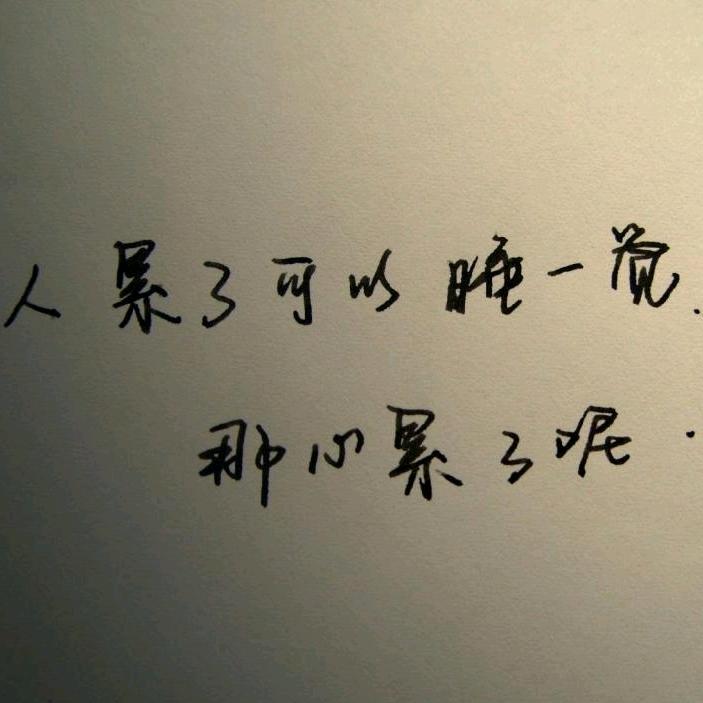 人累了可以睡一觉.
那心累了呢.